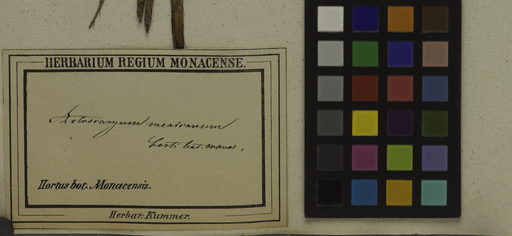 HERBARIUM REGIUM MONACENSE.
Astrocaryum mexicanum
horti bot. monac.
Hortus bot. Monacensis.
Herbar. Kummer.